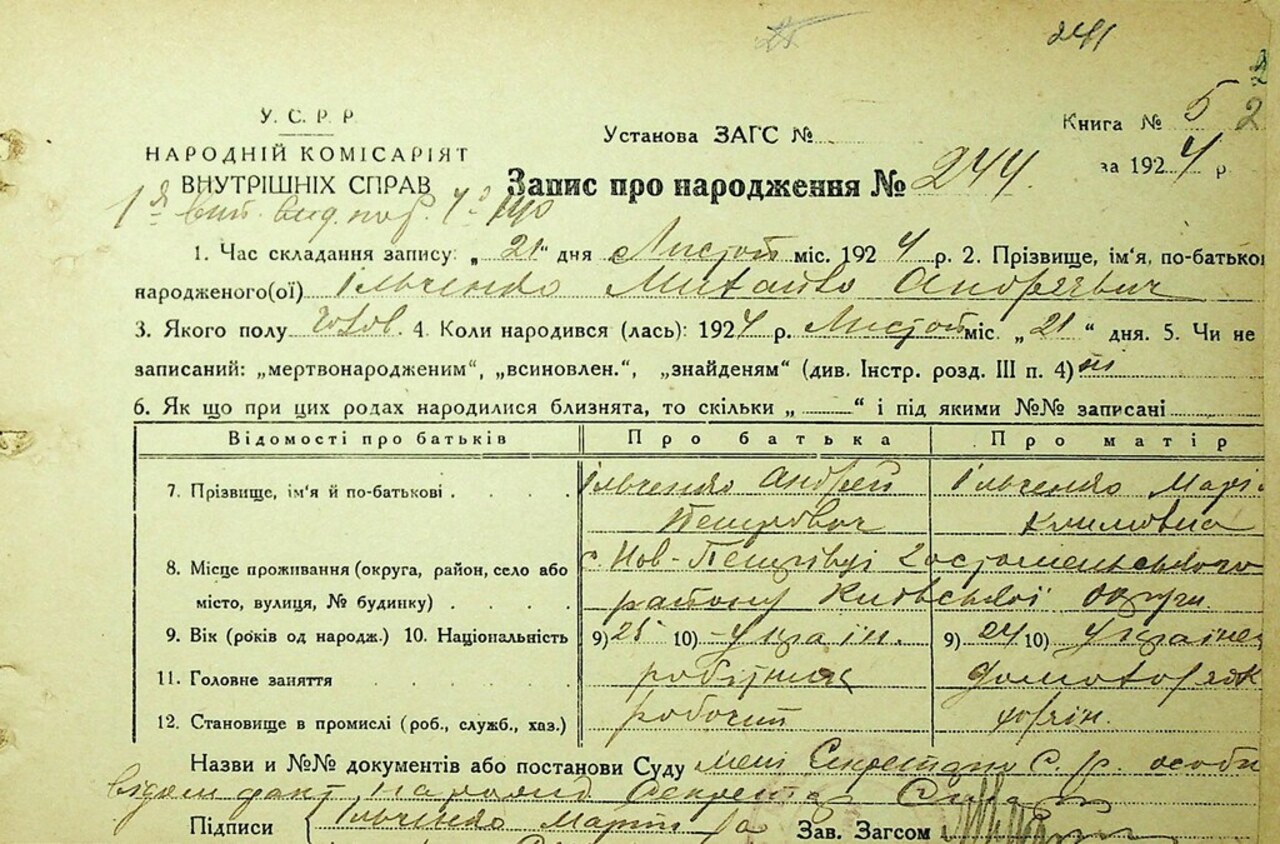 241
У. С. Р. Р.
НАРОДНІЙ КОМІСАРІЯТ
ВНУТРІШНІХ СПРАВ
Установа ЗАГС №
Книга № 5 2
за 1924 р
Запис про народження № 244.
1. Час складання запису: „ 21“ дня Листоп міс. 1924 р. 2. Прізвище, ім'я, по-батькові
народженого(ої) Ільченко Михайло Андреєвич
3. Якого полу чолов. 4. Коли народився (лась): 1924 р. Листоп міс. „ 21 “ дня. 5. Чи не
записаний: „мертвонародженим“, „всиновлен.“, „знайденям“ (див. Інстр. розд. III п. 4) ні
6. Як що при цих родах народилися близнята, то скільки „ “ і під якими №№ записані
Відомості про батьків Про батька Про матір
7. Прізвище, ім'я й по-батькові Ільченко Андрей Ільченко Марі
Петрович Климовна
8. Місце проживання (округа, район, село або с. Нов-Петрівці Гостомельського
місто, вулиця, № будинку) району Київської округи
9. Вік (років од народж.) 10. Національність 9) 25 10) Україн. 9) 24 10) Украінец
11. Головне заняття робітник домохор
12. Становище в промислі (роб., служб., хаз.) робочий
Назви и №№ документів або постанови Суду мені Секретарю С. р. особи
відом факт народж Секретар
Підписи Ільченко Зав. Загсом